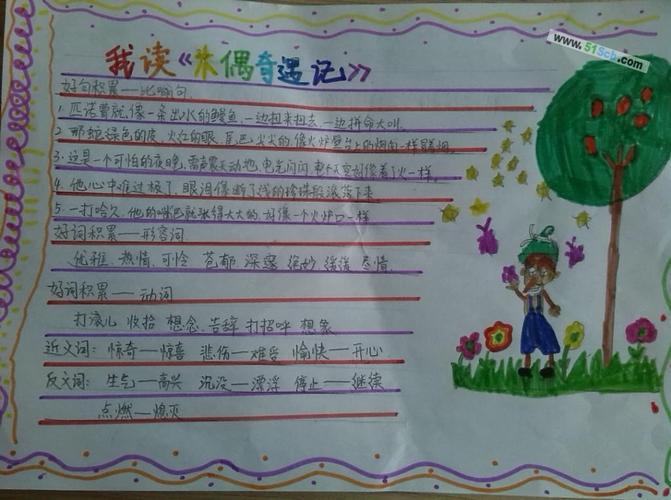 我读《木偶奇遇记》
www.51Scb.com
好句积累——比喻句
1.匹诺曹就像一条出水的鳗鱼,一边扭来扭去,一边拼命大叫
2.那蛇绿色的皮,火红的眼,尾巴尖尖的,像火炉台上的烟囱一样冒烟
3.这是一个可怕的夜晚,雷声震天动地,电光闪闪,天空好像着了火一样。
4.他心中难过极了,眼泪像断了线的珍珠般滚落下来
5.一打哈欠,他的嘴巴就张得大大的,好像一个火炉口一样
好词积累——形容词
优雅、热情、可怜 苍郁 深邃 绝妙 缓缓 尽情
好词积累——动词
打滚儿 收拾 想念、告辞 打招呼 想象
近义词:惊奇——惊喜 悲伤——难受 愉快——开心
反义词:生气——高兴 沉没——漂浮 停止——继续
点燃——熄灭